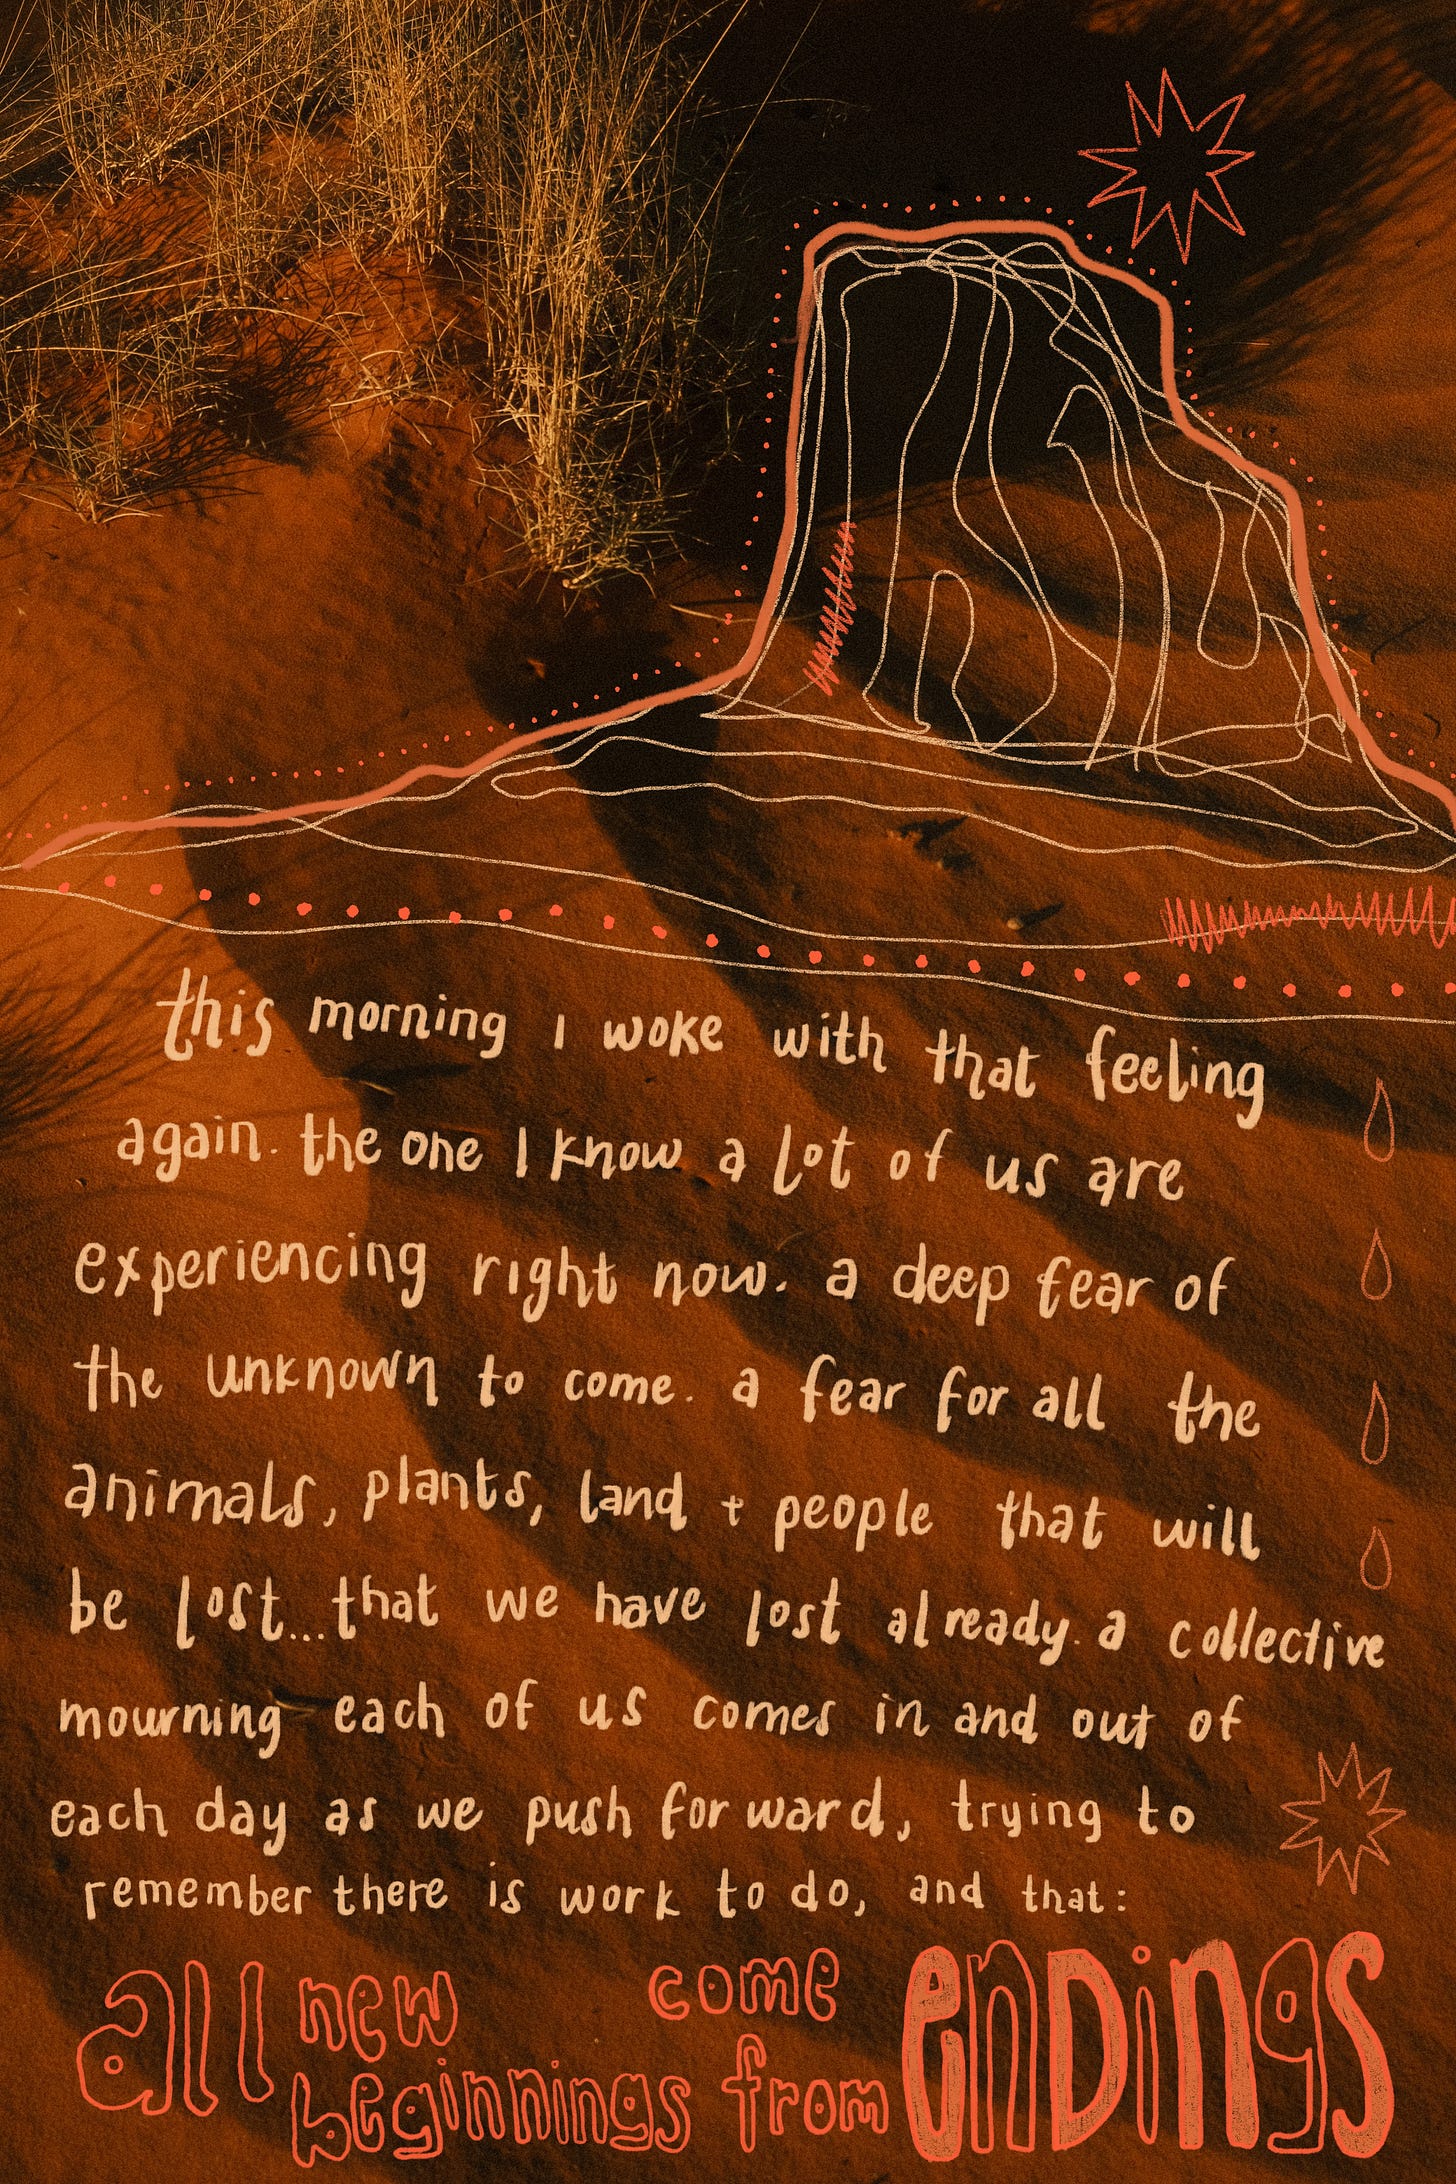 this morning I woke with that feeling
again. the one I know a lot of us are
experiencing right now. a deep fear of
the unknown to come. a fear for all the
animals, plants, land + people that will
be lost...that we have lost already. a collective
mourning each of us comes in and out of
each day as we push forward, trying to
remember there is work to do, and that:
all new beginnings come from endings